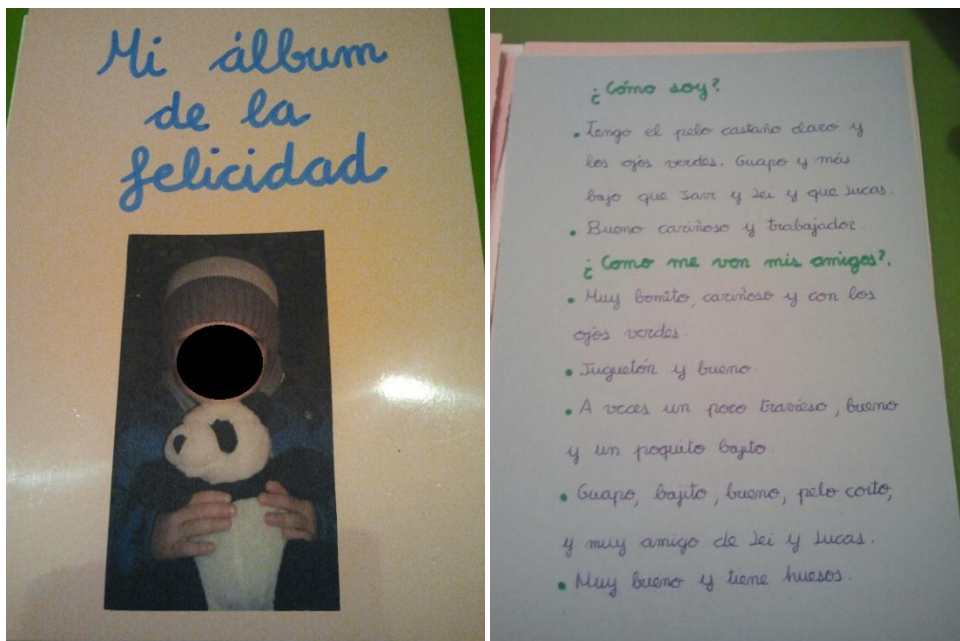 Mi álbum
de la
felicidad
¿Cómo soy?
• Tengo el pelo castaño claro y
los ojos verdes. Guapo y más
bajo que Javi y Lei y que Lucas.
• Bueno cariñoso y trabajador.
¿Como me ven mis amigos?.
• Muy bonito, cariñoso y con los
ojos verdes.
• Juguetón y bueno.
• A veces un poco travieso, bueno
y un poquito bajito.
• Guapo, bajito, bueno, pelo corto,
y muy amigo de Lei y Lucas.
• Muy bueno y tiene huesos.